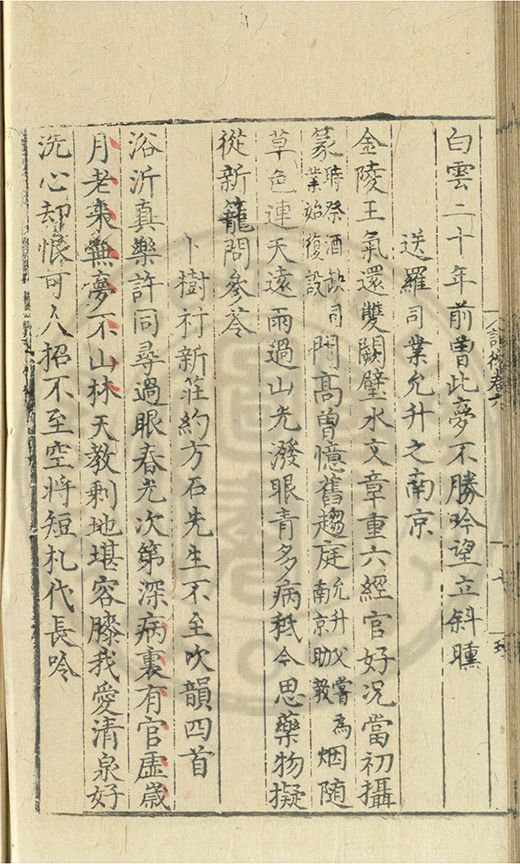 白雲二十年前曾此夢不勝吟望立斜曛
送羅司業允升之南京
金陵王氣還雙闕璧水文章重六經官好況當初攝
篆時祭酒缺司業始復設門高曾憶舊趨庭允升父嘗為南京助教烟随
草色連天遠雨過山光潑眼青多病秪今思藥物擬
從新籠問參苓
卜樹村新莊約方石先生不至次韻四首
浴沂真樂許同尋過眼春光次第深病裏有官虛歲
月老來無夢不山林天教剩地堪容膝我愛清泉好
洗心却恨可人招不至空將短札代長吟